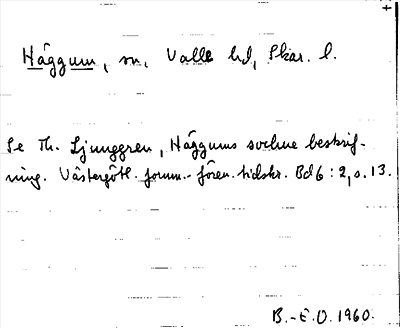 Häggum, sn, Valle hd, Skar. l.
Se Th. Ljunggren, Häggums sockne beskrif-
ning. Västergötl. fornm.-fören. tidskr. Bd 6 : 2, s. 13.
B.-E.O. 1960.